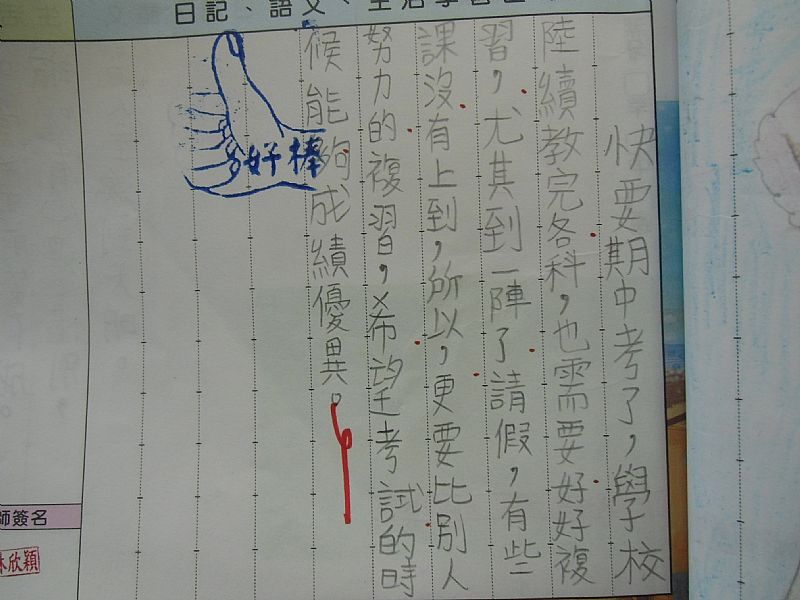 日記、語文、生活學習
快要期中考了，學校
陸續教完各科，也需要好好複
習，尤其到一陣了請假，有些
課沒有上到，所以，更要比別人
努力的複習，希望考試的時
候能夠成績優異。
好棒
師簽名
林欣穎